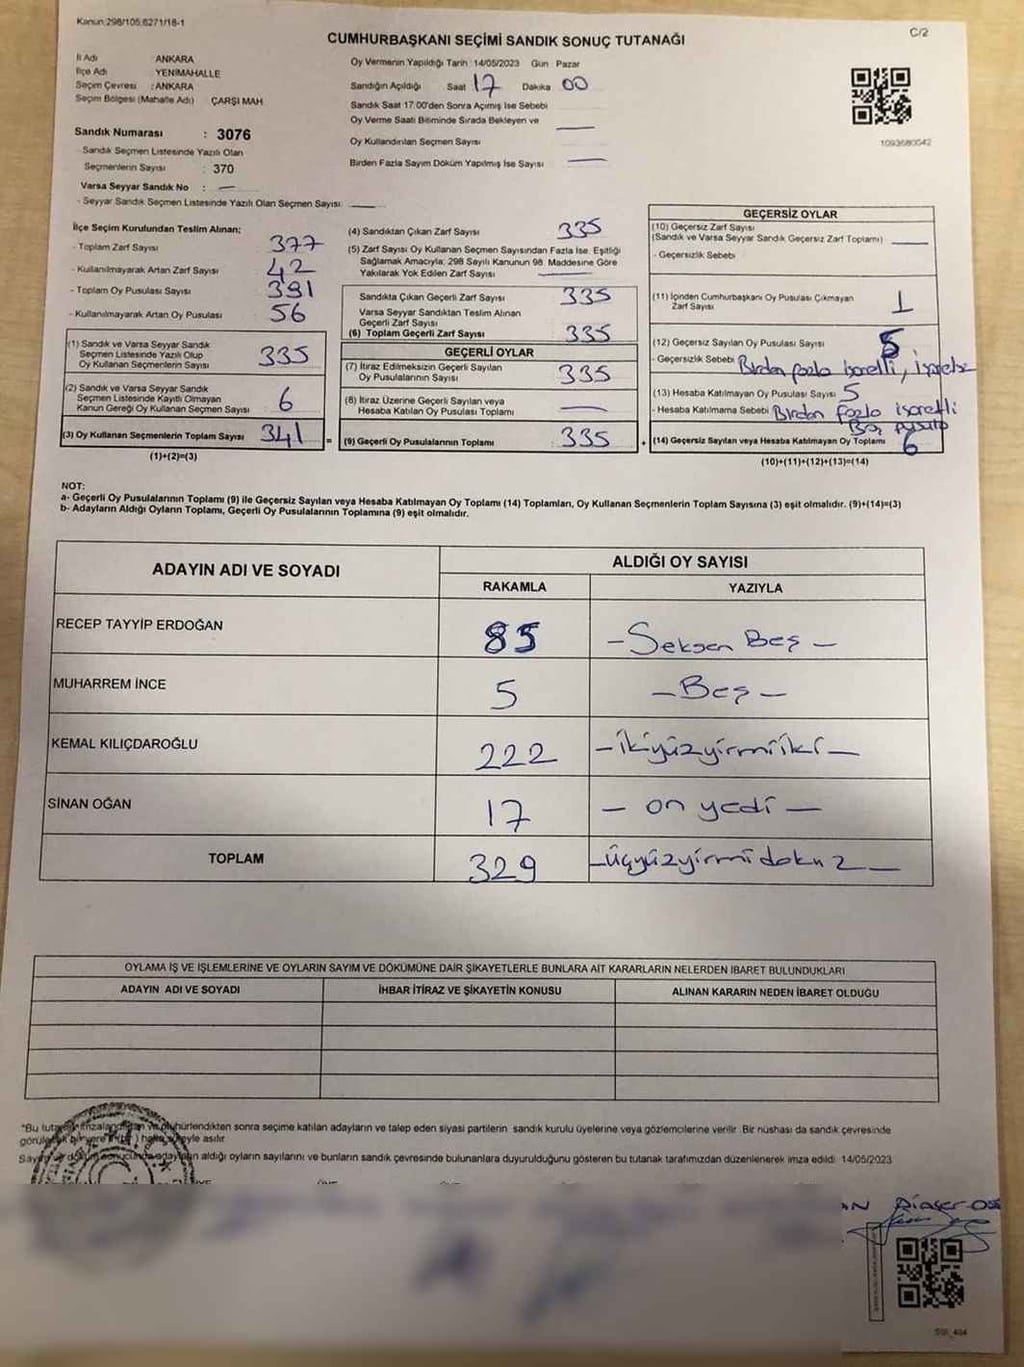 Kanun:298/105,6271/18-1
C/2
CUMHURBAŞKANI SEÇİMİ SANDIK SONUÇ TUTANAĞI
İl Adı ANKARA
İlçe Adı YENİMAHALLE
Seçim Çevresi : ANKARA
Seçim Bölgesi (Mahalle Adı) ÇARŞI MAH
Sandık Numarası : 3076
Sandık Seçmen Listesinde Yazılı Olan
Seçmenlerin Sayısı : 370
Varsa Seyyar Sandık No : —
- Seyyar Sandık Seçmen Listesinde Yazılı Olan Seçmen Sayısı: —
Oy Vermenin Yapıldığı Tarih :14/05/2023 Gün Pazar
Sandığın Açıldığı Saat 17 Dakika 00
Sandık Saat 17.00'den Sonra Açımış İse Sebebi
Oy Verme Saati Bitiminde Sırada Bekleyen ve —
Oy Kullandırılan Seçmen Sayısı
Birden Fazla Sayım Döküm Yapılmış İse Sayısı —
1093680042
İlçe Seçim Kurulundan Teslim Alınan;
- Toplam Zarf Sayısı 377
- Kullanılmayarak Artan Zarf Sayısı 42
- Toplam Oy Pusulası Sayısı 391
- Kullanılmayarak Artan Oy Pusulası 56
(1) Sandık ve Varsa Seyyar Sandık
Seçmen Listesinde Yazılı Olup
Oy Kullanan Seçmenlerin Sayısı 335
(2) Sandık ve Varsa Seyyar Sandık
Seçmen Listesinde Kayıtlı Olmayan
Kanun Gereği Oy Kullanan Seçmen Sayısı 6
(3) Oy Kullanan Seçmenlerin Toplam Sayısı 341 =
(1)+(2)=(3)
(4) Sandıktan Çıkan Zarf Sayısı 335
(5) Zarf Sayısı Oy Kullanan Seçmen Sayısından Fazla İse, Eşitliği
Sağlamak Amacıyla; 298 Sayılı Kanunun 98. Maddesine Göre
Yakılarak Yok Edilen Zarf Sayısı —
Sandıkta Çıkan Geçerli Zarf Sayısı 335
Varsa Seyyar Sandıktan Teslim Alınan
Geçerli Zarf Sayısı
(6) Toplam Geçerli Zarf Sayısı 335
GEÇERLİ OYLAR
(7) İtiraz Edilmeksizin Geçerli Sayılan
Oy Pusulalarının Sayısı 335
(8) İtiraz Üzerine Geçerli Sayılan veya
Hesaba Katılan Oy Pusulası Toplamı —
(9) Geçerli Oy Pusulalarının Toplamı 335 +
GEÇERSİZ OYLAR
(10) Geçersiz Zarf Sayısı
(Sandık ve Varsa Seyyar Sandık Geçersiz Zarf Toplamı) —
- Geçersizlik Sebebi
(11) İçinden Cumhurbaşkanı Oy Pusulası Çıkmayan
Zarf Sayısı 1
(12) Geçersiz Sayılan Oy Pusulası Sayısı 5
- Geçersizlik Sebebi Birden fazla işaretli, işaretsiz
(13) Hesaba Katılmayan Oy Pusulası Sayısı 5
- Hesaba Katılmama Sebebi Birden fazla işaretli
Boş pusula
(14) Geçersiz Sayılan veya Hesaba Katılmayan Oy Toplamı 6
(10)+(11)+(12)+(13)=(14)
NOT:
a- Geçerli Oy Pusulalarının Toplamı (9) ile Geçersiz Sayılan veya Hesaba Katılmayan Oy Toplamı (14) Toplamları, Oy Kullanan Seçmenlerin Toplam Sayısına (3) eşit olmalıdır. (9)+(14)=(3)
b- Adayların Aldığı Oyların Toplamı, Geçerli Oy Pusulalarının Toplamına (9) eşit olmalıdır.
ADAYIN ADI VE SOYADI
ALDIĞI OY SAYISI
RAKAMLA YAZIYLA
RECEP TAYYİP ERDOĞAN 85 -Seksen Beş-
MUHARREM İNCE 5 -Beş-
KEMAL KILIÇDAROĞLU 222 -ikiyüzyirmiiki-
SİNAN OĞAN 17 - on yedi -
TOPLAM 329 -üçyüzyirmidokuz-
OYLAMA İŞ VE İŞLEMLERİNE VE OYLARIN SAYIM VE DÖKÜMÜNE DAİR ŞİKAYETLERLE BUNLARA AİT KARARLARIN NELERDEN İBARET BULUNDUKLARI
ADAYIN ADI VE SOYADI İHBAR İTİRAZ VE ŞİKAYETİN KONUSU ALINAN KARARIN NEDEN İBARET OLDUĞU
"Bu sonra seçime katılan adayların ve talep eden siyasi partilerin sandık kurulu üyelerine veya gözlemcilerine verilir. Bir nüshası da sandık çevresinde
asılır
aldığı oyların sayılarını ve bunların sandık çevresinde bulunanlara duyurulduğunu gösteren bu tutanak tarafımızdan düzenlenerek imza edildi. 14/05/2023